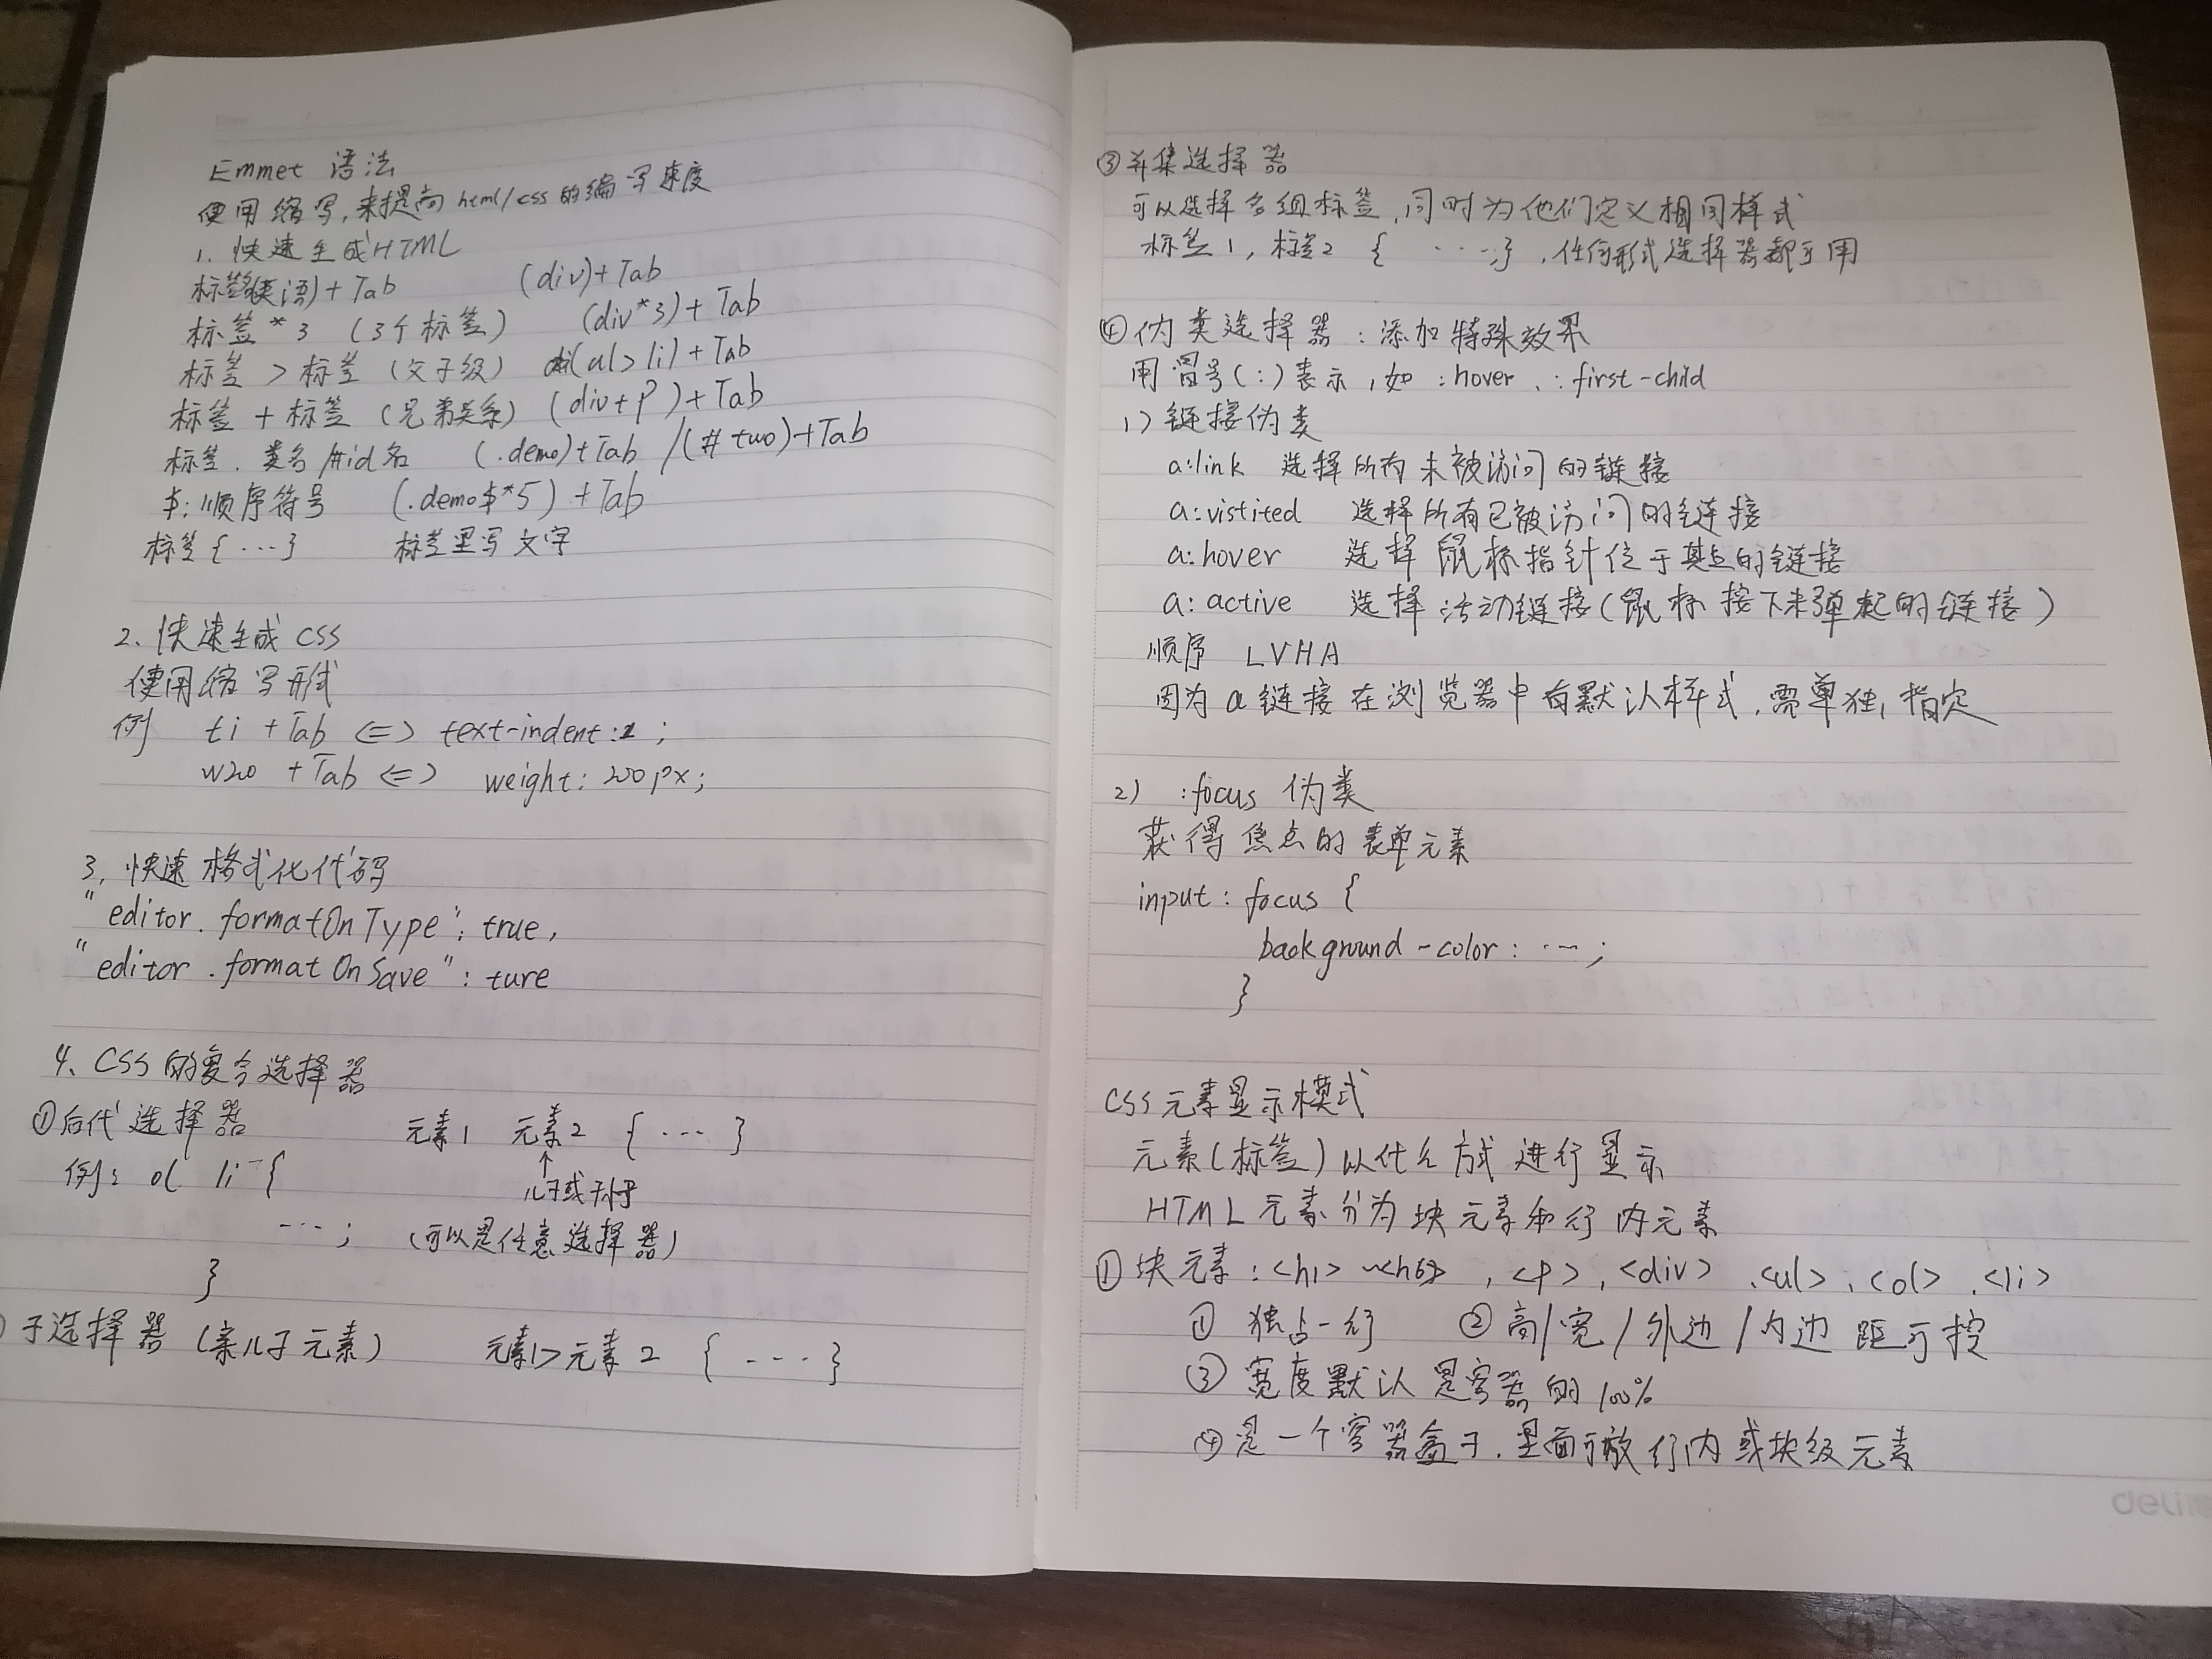 Emmet 语法
使用缩写,来提高 html/css的编写速度
1. 快速生成HTML
标签(英语)+Tab (div)+Tab
标签*3 (3个标签) (div*3)+Tab
标签 > 标签 (父子级) (ul>li)+Tab
标签 + 标签 (兄弟关系) (div+p)+Tab
标签.类名/#id名 (.demo)+Tab /(#two)+Tab
$:顺序符号 (.demo$*5)+Tab
标签{...} 标签里写文字
2、快速生成 CSS
使用缩写形式
例 ti +Tab <=> text-indent: ;
w200 +Tab <=> weight: 200px;
3, 快速格式化代码
"editor.formatOnType": true,
"editor.formatOnSave": ture
4、CSS的复合选择器
①后代选择器 元素1 元素2 {...}
↑
例: ol li {
儿子或孙子
...; (可以是任意选择器)
}
子选择器(亲儿子元素) 元素1>元素2 {....}
③并集选择器
可以选择多组标签,同时为他们定义相同样式
标签1,标签2 { ...;},任何形式选择器都可用
④伪类选择器:添加特殊效果
用冒号(:)表示,如 :hover、:first-child
1)链接伪类
a:link 选择所有未被访问的链接
a:vistited 选择所有已被访问的链接
a:hover 选择鼠标指针位于其上的链接
a:active 选择活动链接(鼠标按下未弹起的链接)
顺序 LVHA
因为a链接在浏览器中有默认样式,需单独指定
2) :focus 伪类
获得焦点的表单元素
input:focus {
background-color: ...;
}
CSS元素显示模式
元素(标签)以什么方式进行显示
HTML元素分为块元素和行内元素
①块元素:<h1>~<h6>,<p>,<div>、<ul>、<ol>、<li>
① 独占一行 ②高/宽/外边/内边距可控
③宽度默认是容器的100%
④是一个容器盒子,里面可放行内或块级元素
deli